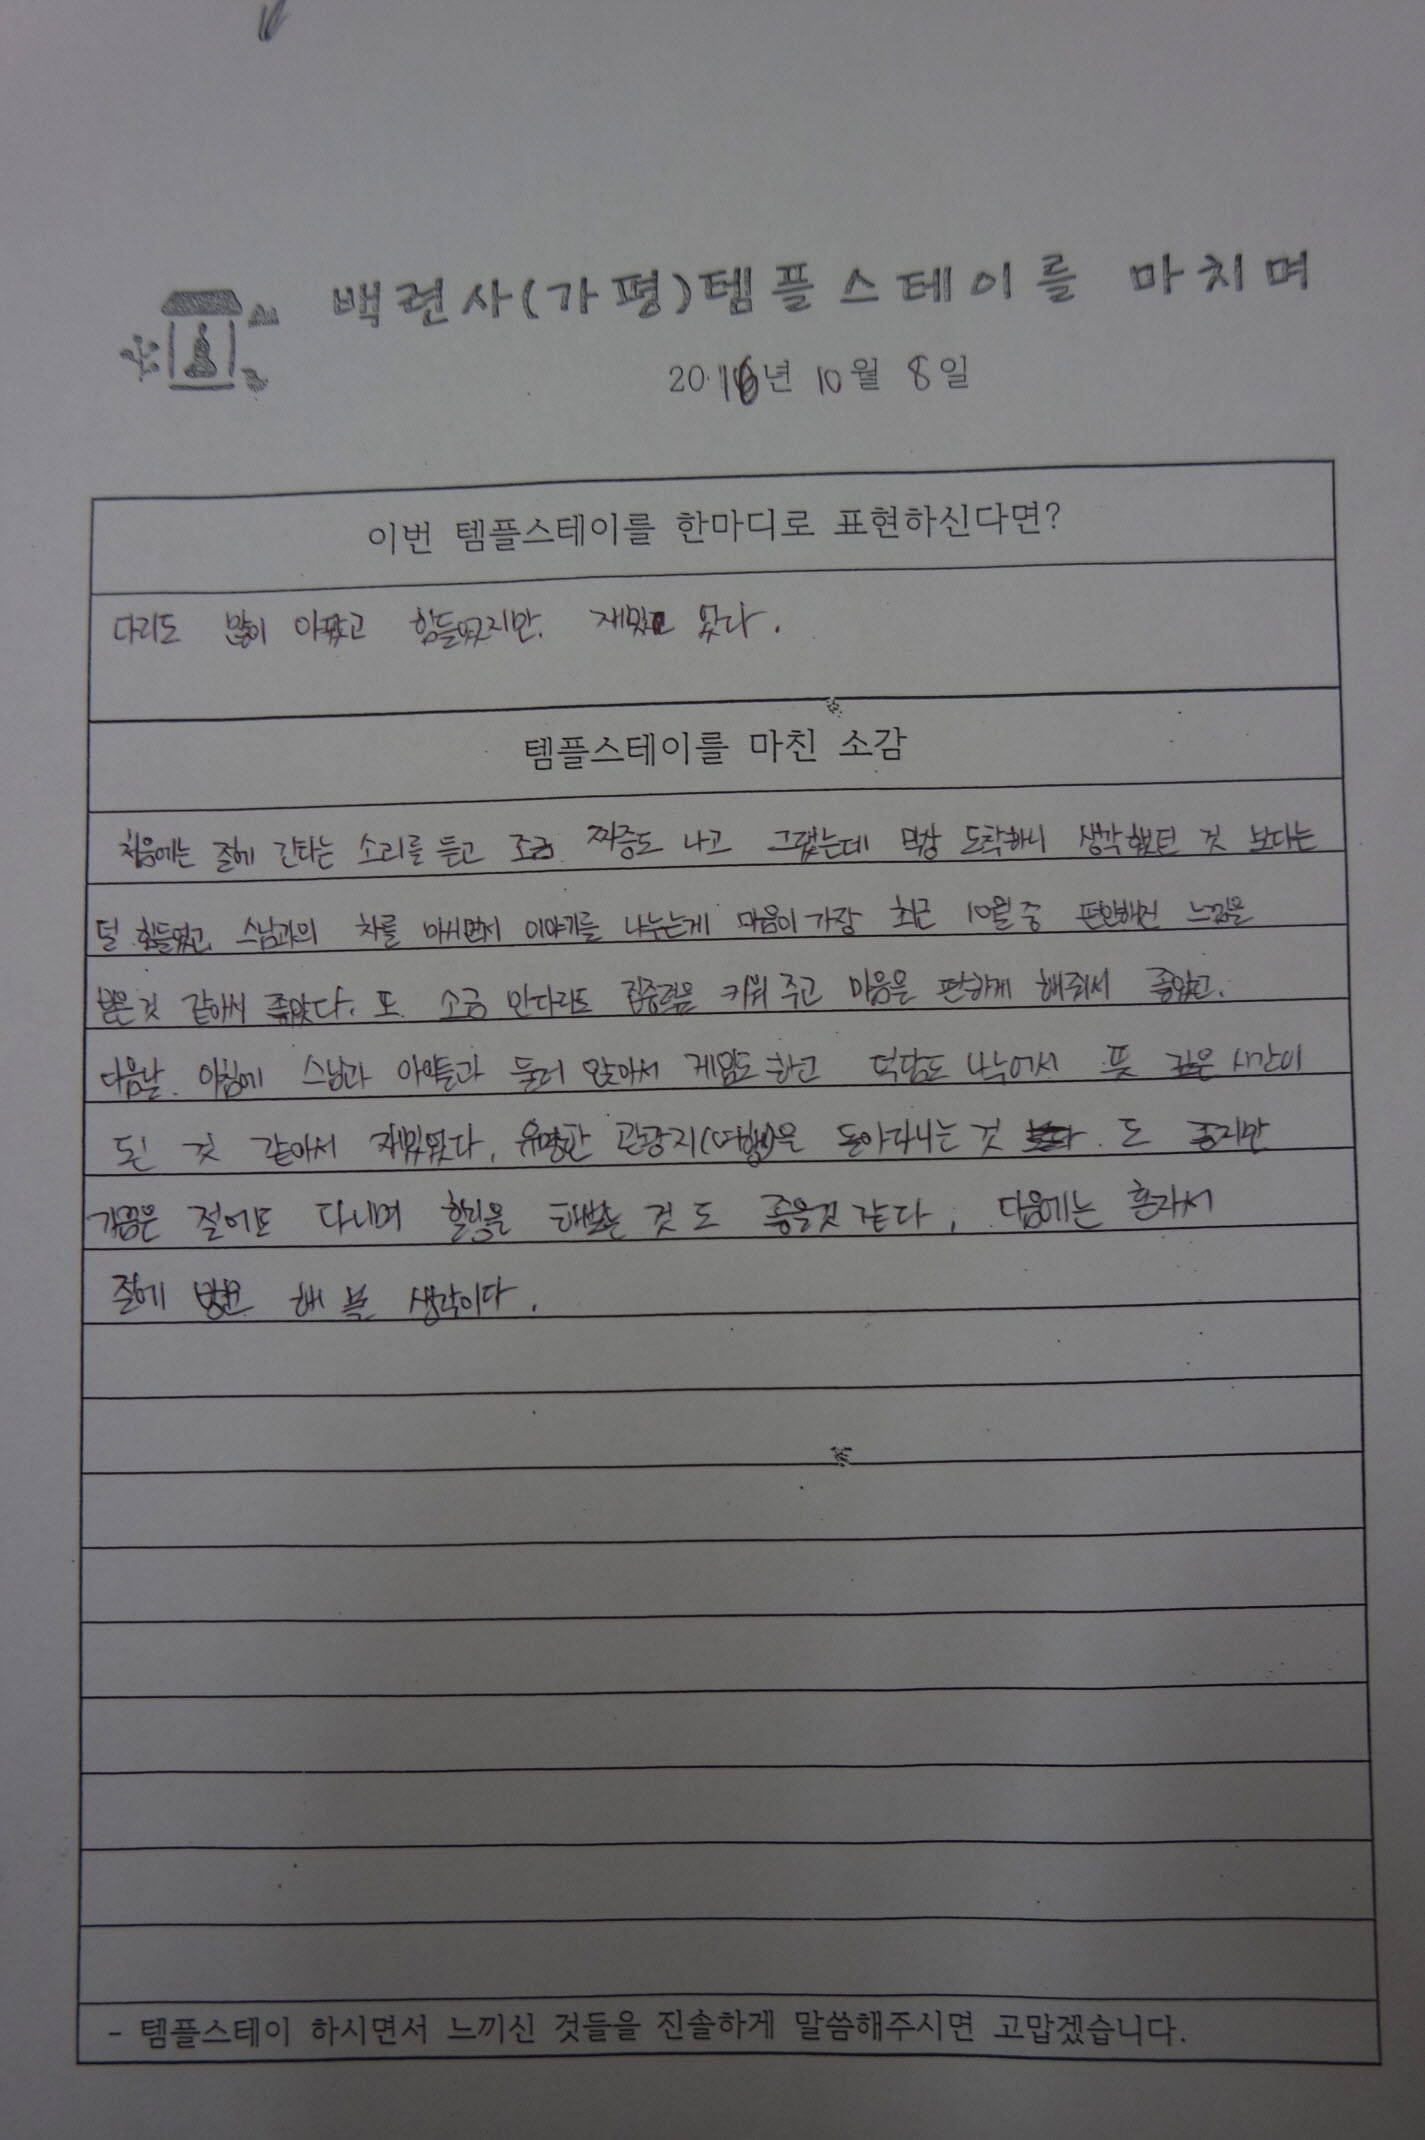 백련사(가평)템플스테이를 마치며
2016년 10월 8일
이번 템플스테이를 한마디로 표현하신다면?
다리도 많이 아팠고 힘들었지만, 재밌고 왔다.
템플스테이를 마친 소감
처음에는 절에 간다는 소리를 듣고 조금 짜증도 나고 그랬는데 막상 도착하니 생각했던 것 보다는
덜 힘들었고 스님과의 차를 마시면서 이야기를 나누는게 마음이 가장 최근 10월 중 편안해진 느낌을
받은것 같아서 좋았다. 또 소금 만다라도 집중력을 키워 주고 마음은 편하게 해줘서 좋았고,
다음날 아침에 스님과 아이들과 둘러 앉아서 게임도 하고 덕담도 나누어서 뜻 깊은 시간이
된 것 같아서 재밌었다. 유명한 관광지(여행)은 돌아다니는 것 도 좋지만
가끔은 절에도 다니며 힐링을 해보는 것 도 좋을것 같다. 다음에는 혼자서
절에 방문 해 볼 생각이다.
- 템플스테이 하시면서 느끼신 것들을 진솔하게 말씀해주시면 고맙겠습니다.